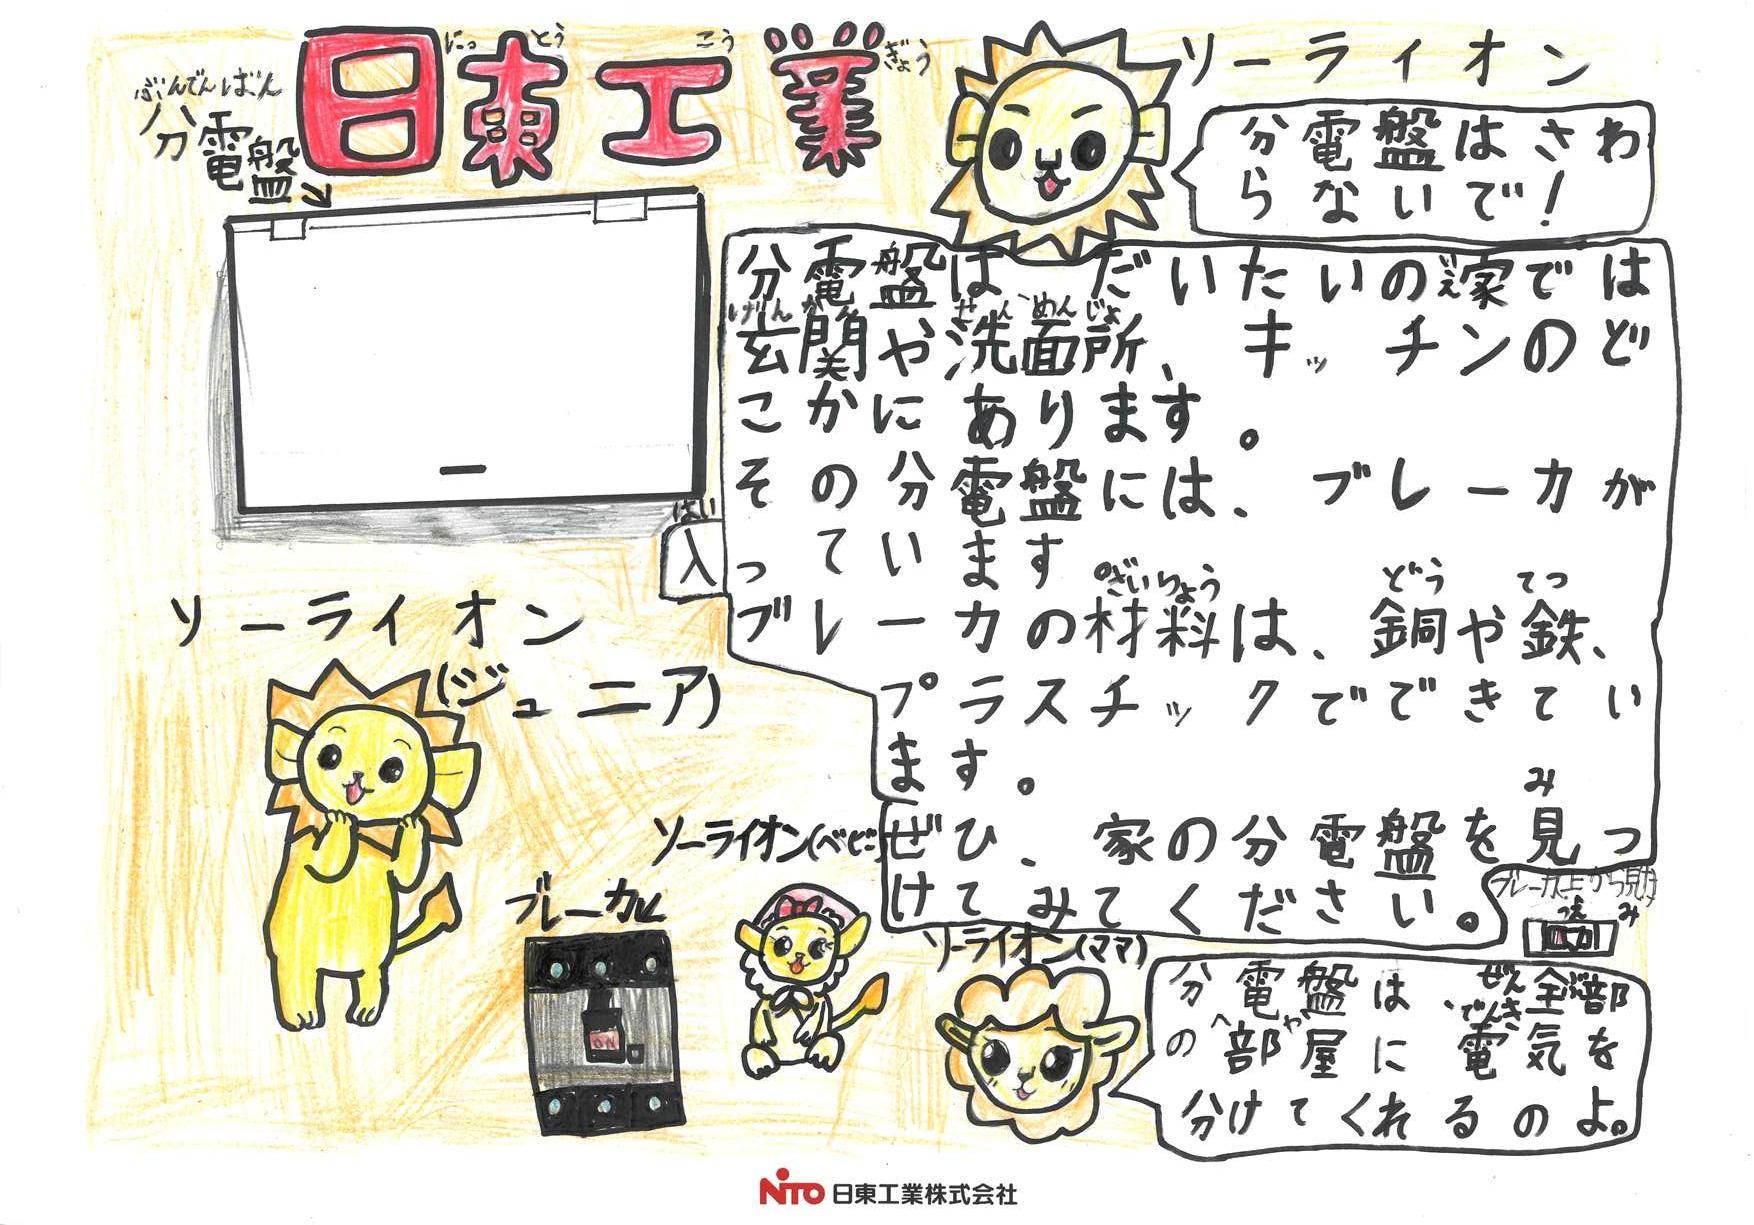 日東工業
にっとうこうぎょう
ぶんでんばん
分電盤
ソーライオン
分電盤はさわ
らないで!
分電盤は だいたいの家では
いえ
げんかん せんめんじょ
玄関や洗面所、キッチンのど
こかにあります。
その分電盤には、ブレーカが
はい
入っています。
ざいりょう どう てつ
ブレーカの材料は、銅や鉄、
プラスチックでできてい
ます。
み
ぜひ、家の分電盤を見つ
けてみてください。
ソーライオン
(ジュニア)
ソーライオン(ベビー)
ブレーカ
ON
ブレーカ上から見た
うえ み
ソーライオン(ママ)
ぜんぶ
分電盤は、全部
へや でんき
の部屋に電気を
分けてくれるのよ。
NITO 日東工業株式会社